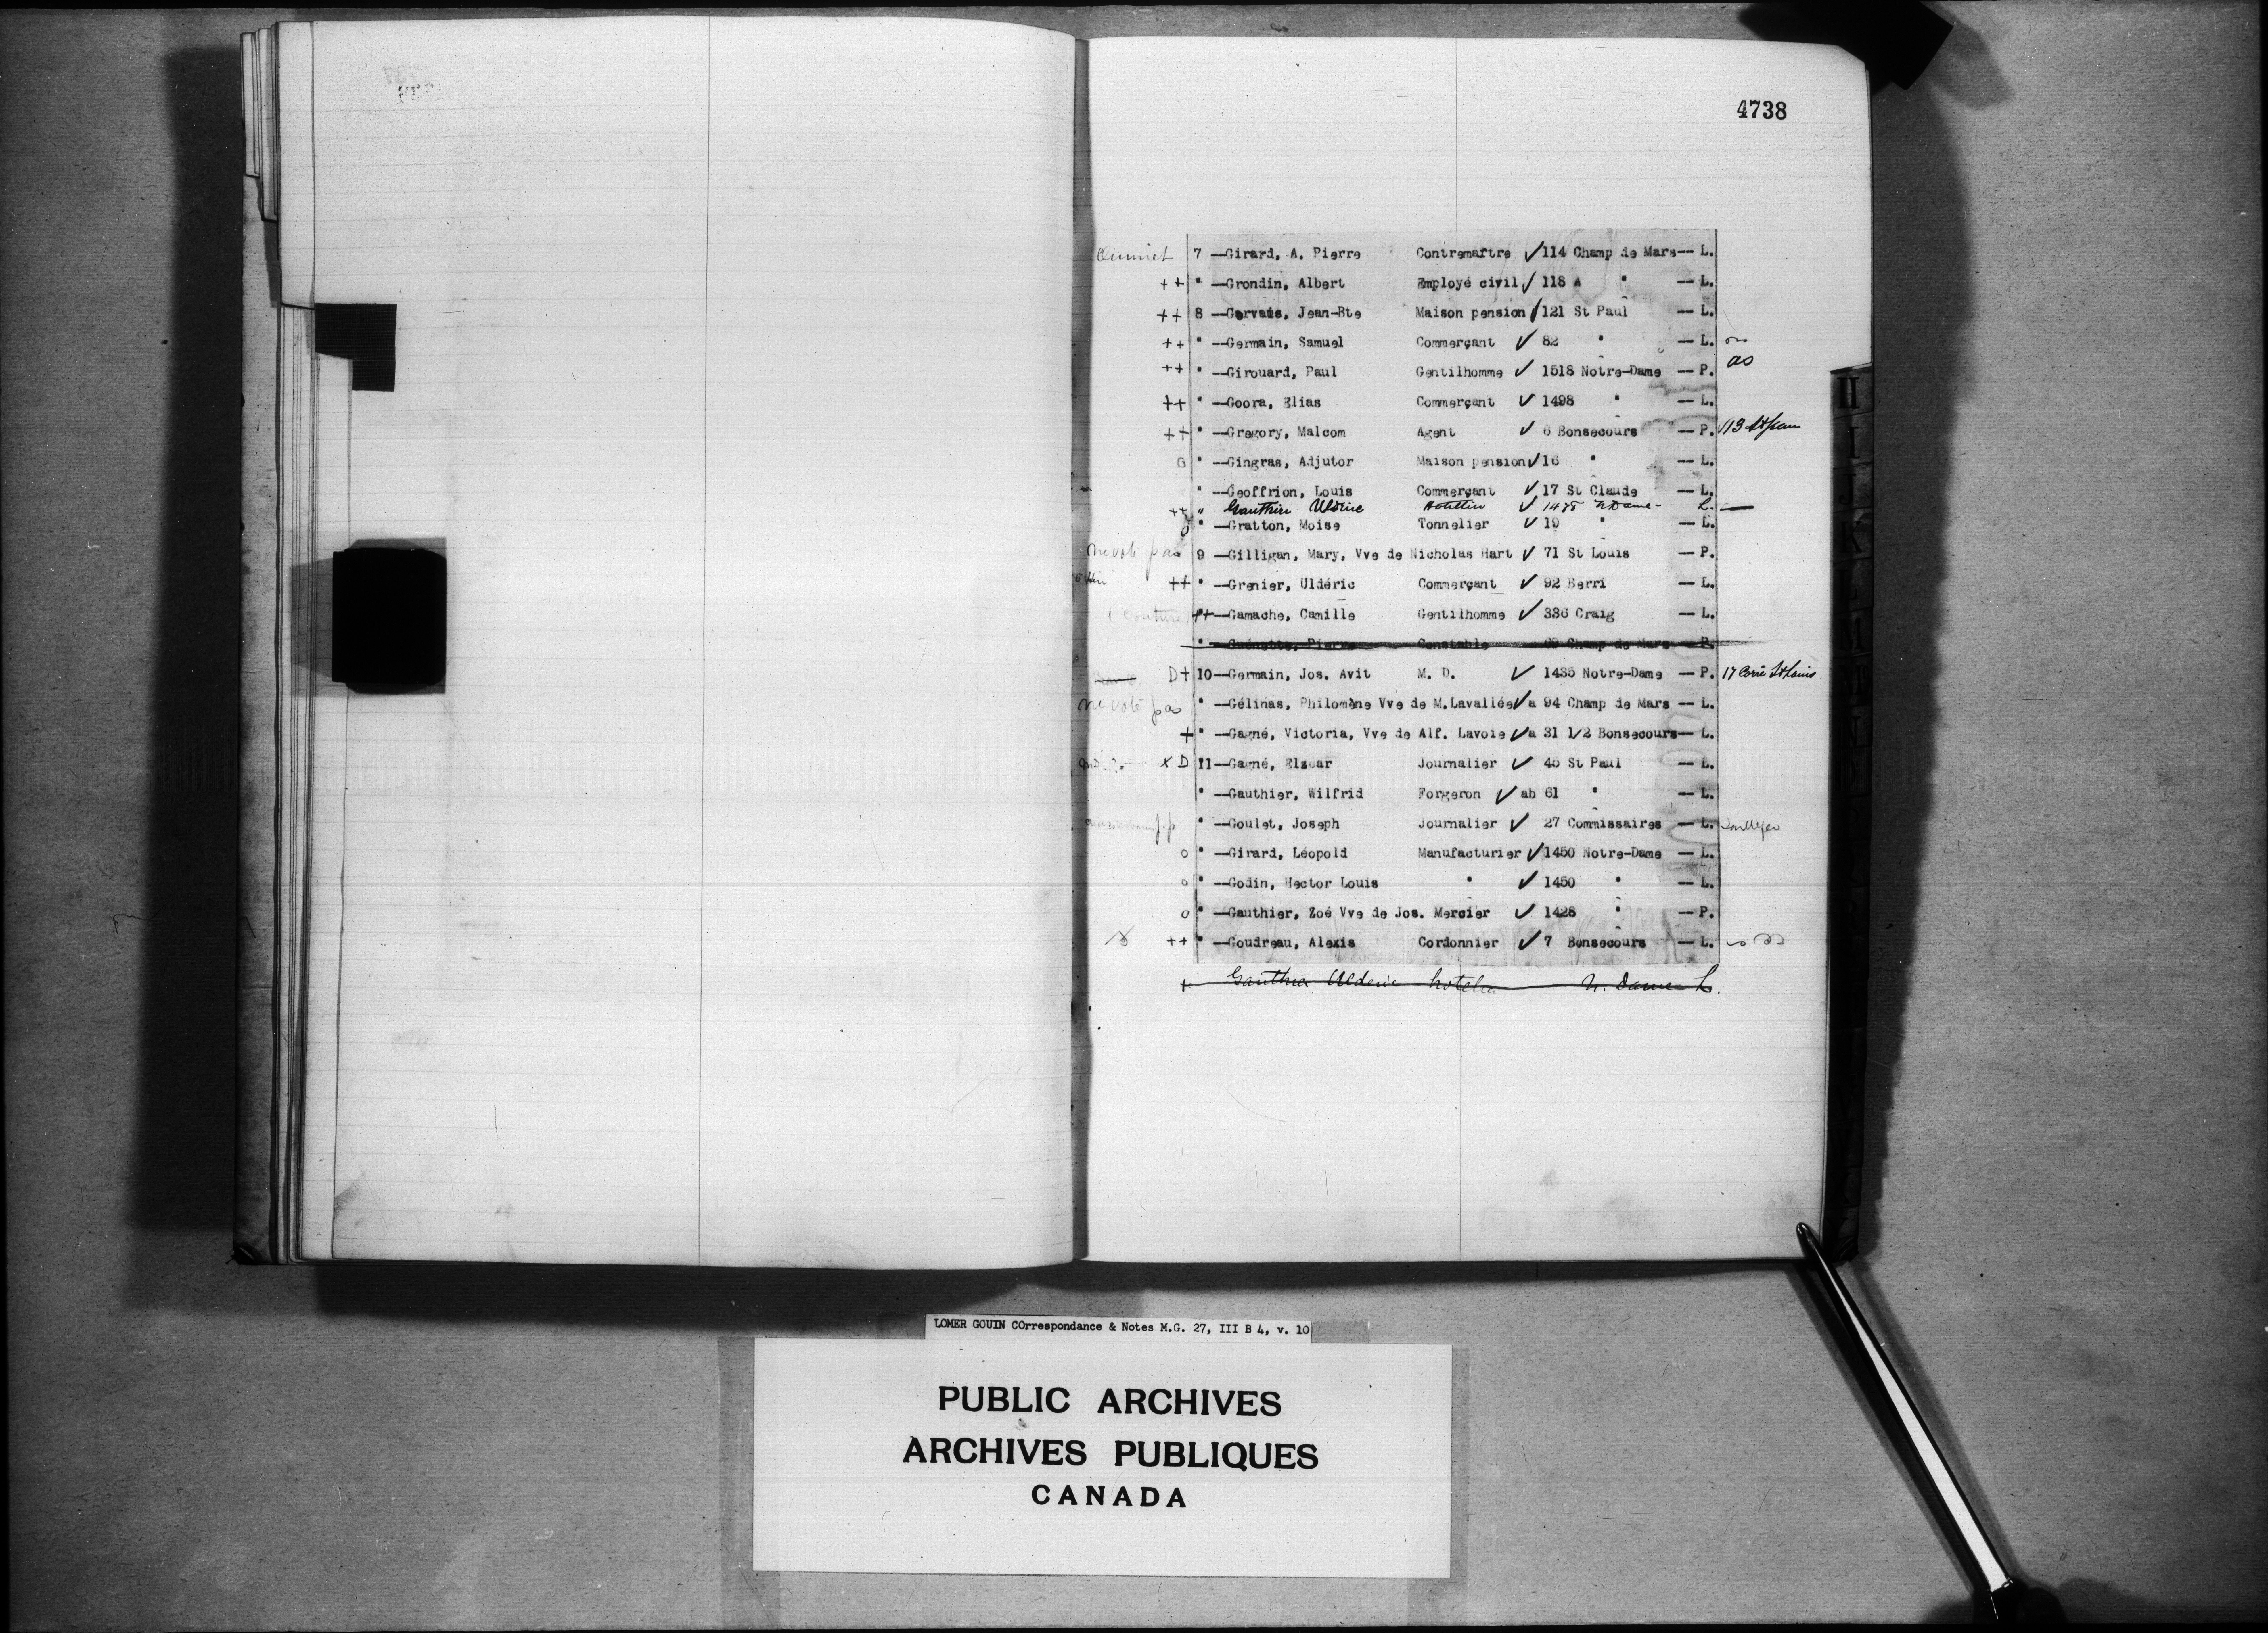 4738
7 —Girard, A. Pierre Contremaître ✓ 114 Champ de Mars— L.
++ " —Grondin, Albert Employé civil ✓ 118 A " — L.
++ 8 —Gervais, Jean-Bte Maison pension ✓ 121 St Paul — L.
++ " —Germain, Samuel Commerçant ✓ 82 " — L.
++ " —Girouard, Paul Gentilhomme ✓ 1518 Notre-Dame — P. as
++ " —Goora, Elias Commerçant ✓ 1498 " — L.
++ " —Gregory, Malcom Agent ✓ 6 Bonsecours — P.
" —Gingras, Adjutor Maison pension ✓ 16 " — L.
" —Geoffrion, Louis Commerçant ✓ 17 St Claude — L.
++ " Gauthier Uldric Hotellier ✓ N Dame - L. —
" —Gratton, Moise Tonnelier ✓ 19 " — L.
ne vote pas 9 —Gilligan, Mary, Vve de Nicholas Hart ✓ 71 St Louis — P.
++ " —Grenier, Uldéric Commerçant ✓ 92 Berri — L.
++ —Gamache, Camille Gentilhomme ✓ 336 Craig — L.
" —Guénette, Pierre Constable Champ de Mars — P.
D+ 10—Germain, Jos. Avit M. D. ✓ 1435 Notre-Dame — P. 17 Carré St Louis
ne vote pas " —Gélinas, Philomène Vve de M.Lavallée ✓ a 94 Champ de Mars — L.
+ " —Gagné, Victoria, Vve de Alf. Lavoie ✓ a 31 1/2 Bonsecours— L.
X D 11—Gagné, Elzear Journalier ✓ 45 St Paul — L.
" —Gauthier, Wilfrid Forgeron ✓ ab 61 " — L.
" —Goulet, Joseph Journalier ✓ 27 Commissaires — L.
o " —Girard, Léopold Manufacturier ✓ 1450 Notre-Dame — L.
o " —Godin, Hector Louis " ✓ 1450 " — L.
o " —Gauthier, Zoé Vve de Jos. Mercier ✓ 1428 " — P.
++ " —Goudreau, Alexis Cordonnier ✓ 7 Bonsecours — L.
+ Gauthier Ulderic hotelier N. Dame L.
LOMER GOUIN COrrespondance & Notes M.G. 27, III B 4, v. 10
PUBLIC ARCHIVES
ARCHIVES PUBLIQUES
CANADA